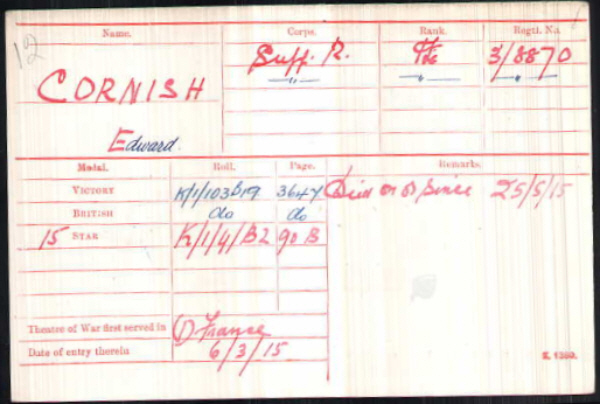 12
Name. Corps. Rank. Regtl. No.
CORNISH Suff. R. Pte 3/8870
Edward. —"— —"— —"—
Medal. Roll. Page. Remarks.
VICTORY K/1/103B19 3647 Died 25/5/15
BRITISH do do
15 STAR K/1/4/B2 90B
Theatre of War first served in (1) France
Date of entry therein 6/3/15
K 1380.